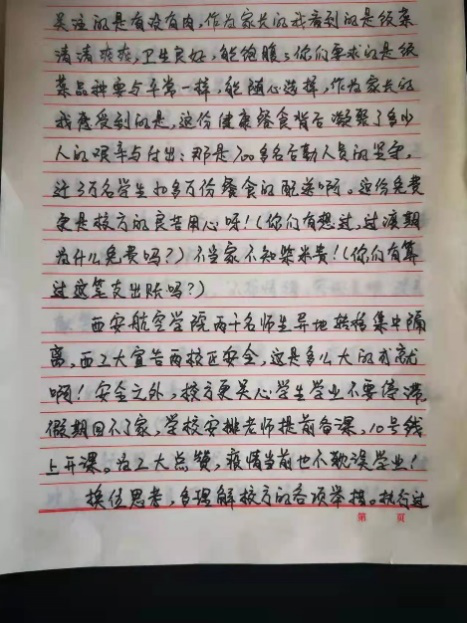 关注的是有没有肉，作为家长的我看到的是饭菜
清清爽爽，卫生良好，能饱腹。你们要求的是饭
菜品种要与平常一样，能随心选择，作为家长的
我感受到的是，这份健康餐食背后凝聚了多少
人的艰辛与付出：那是700多名后勤人员的坚守，
近3万名学生10多万份餐食的配送啊。这份免费
更是校方的良苦用心呀！（你们有想过，过渡期
为什么免费吗？）不当家不知柴米贵！（你们有算
过这笔支出账吗？）
西安航空学院两千名师生异地转移集中隔
离，西工大宣告两校区安全，这是多么大的成就
啊！安全之外，校方更关心学生学业不要停滞，
假期回不了家，学校安排老师提前备课，10号线
上开课。为工大点赞，疫情当前也不耽误学业！
换位思考，多理解校方的各项举措。执行过
第 页